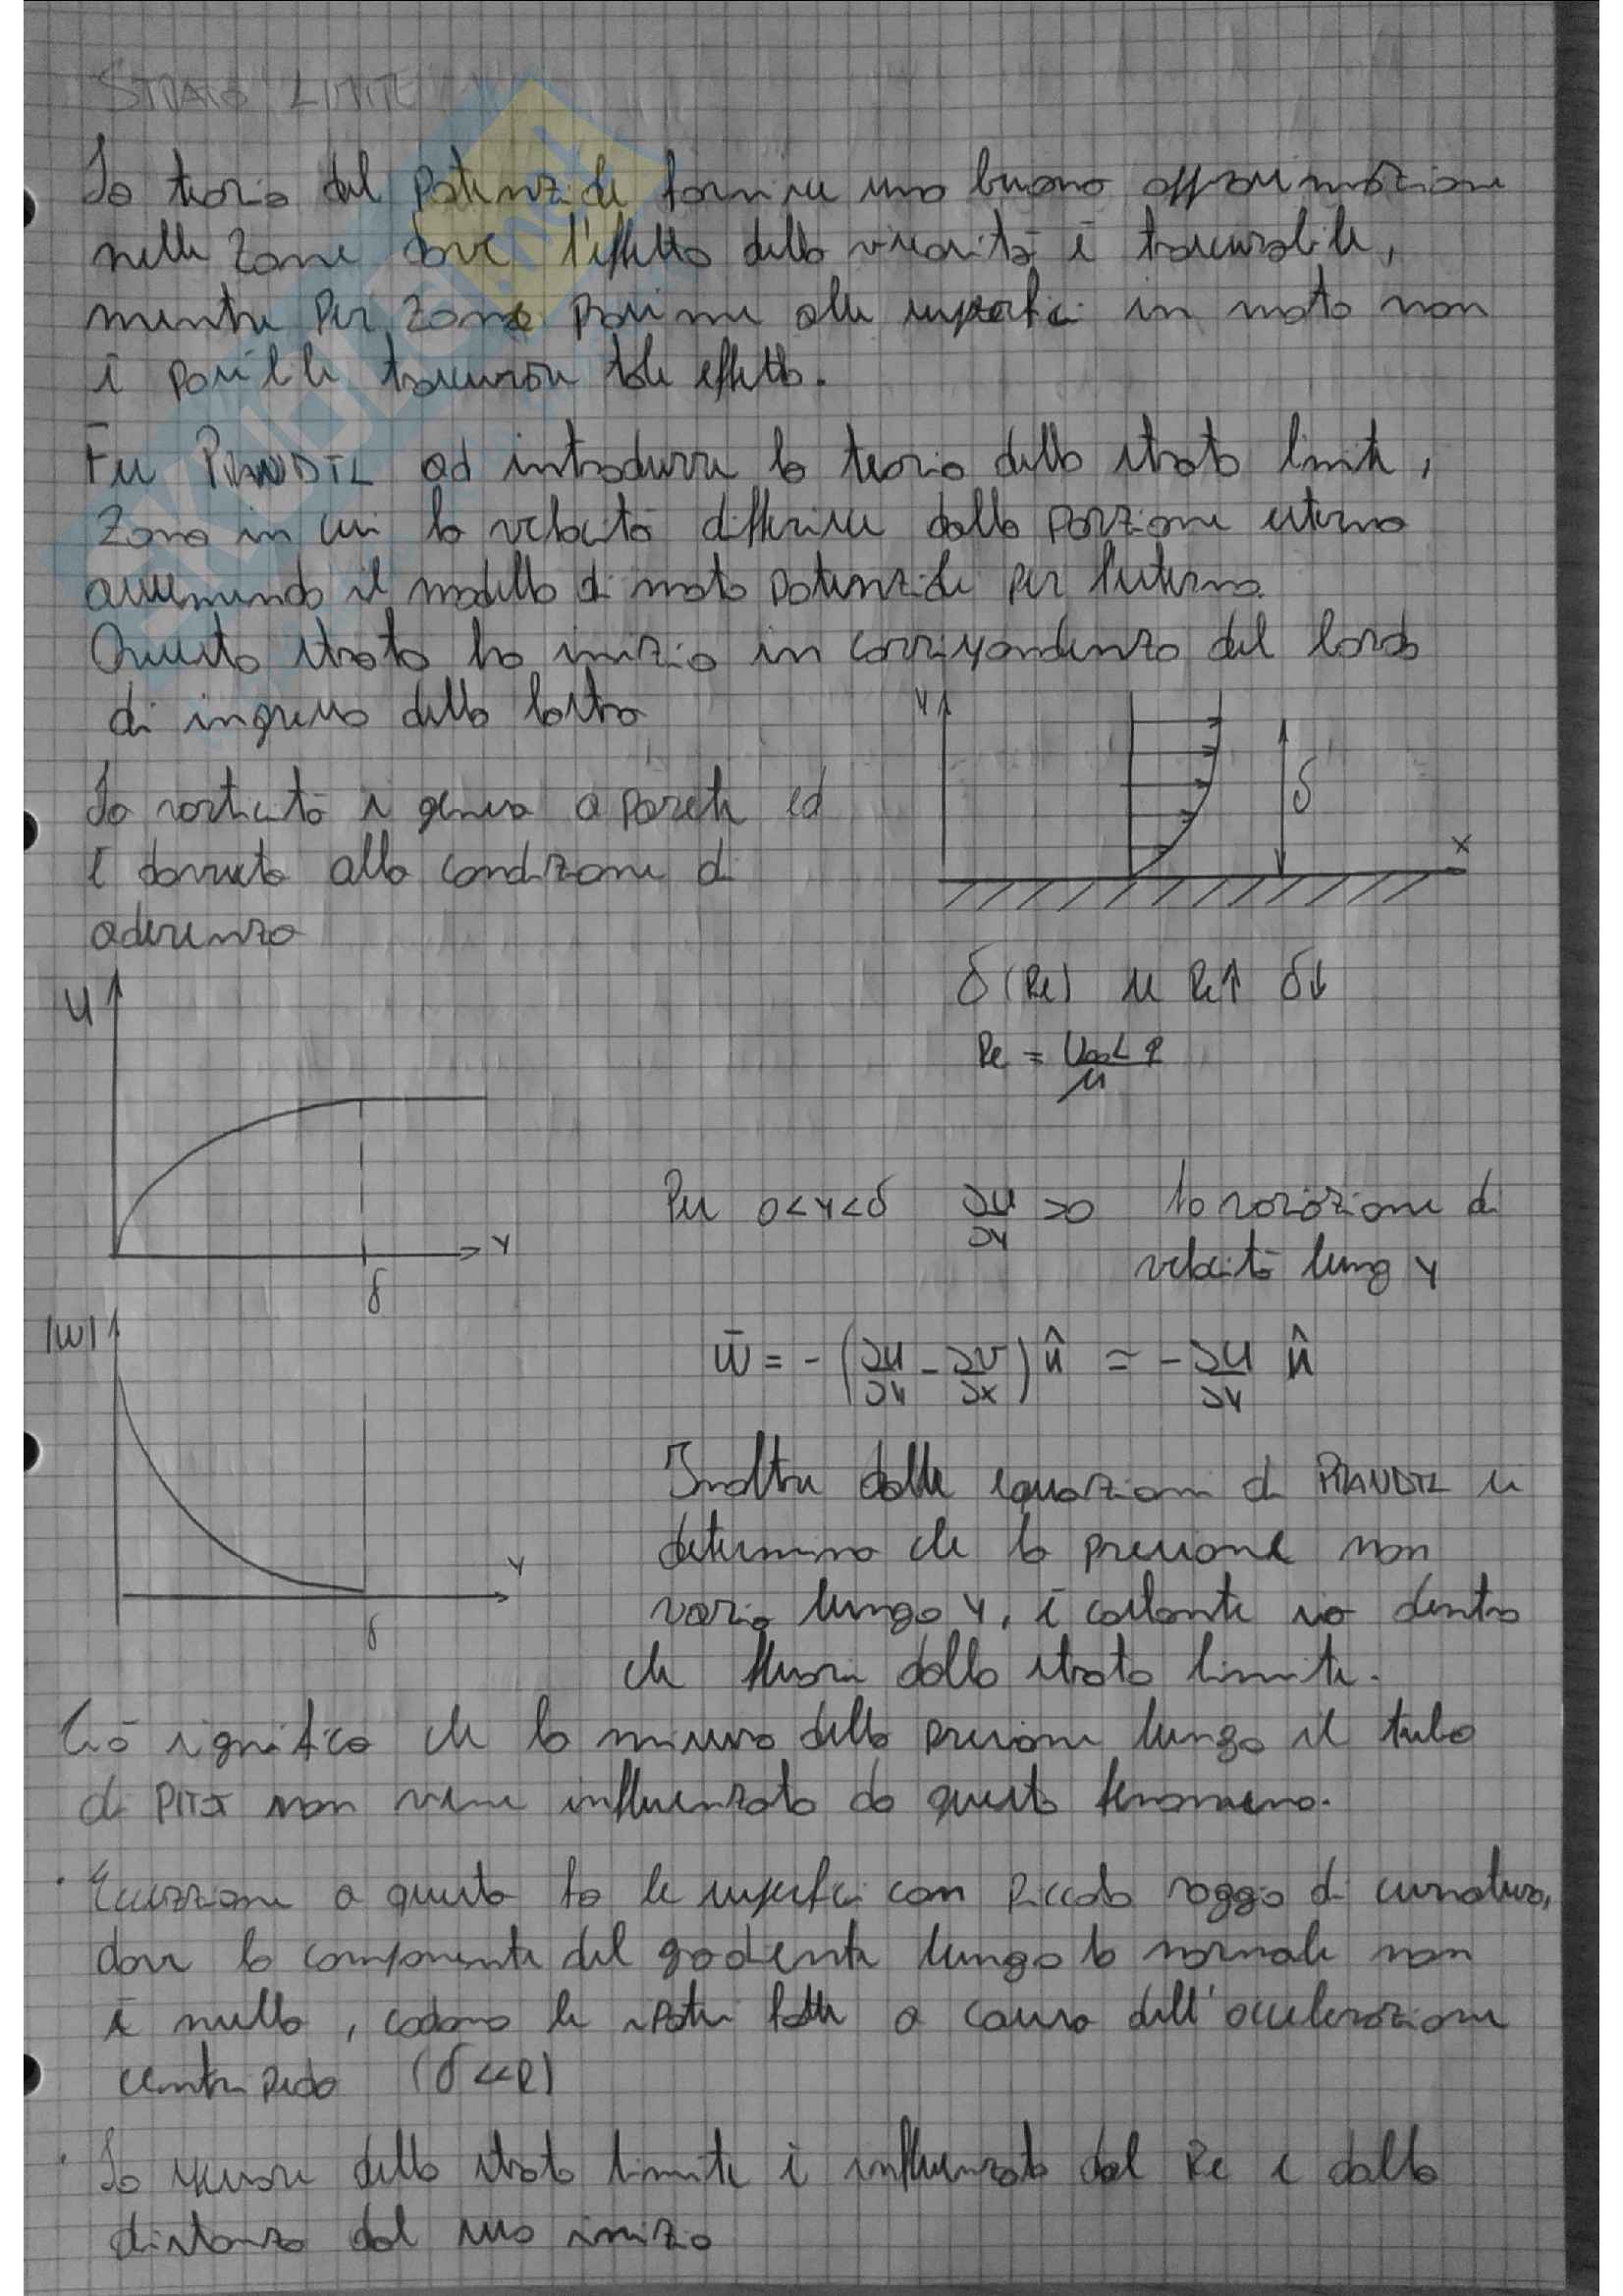 STRATO LIMITE
La teoria del potenziale fornisce una buona approssimazione
nelle zone dove l'effetto della viscosità è trascurabile,
mentre per zone prossime alle superfici in moto non
è possibile trascurare tale effetto.
Fu PRANDTL ad introdurre la teoria dello strato limite,
zona in cui la velocità differisce dalla porzione esterna
assumendo il modello di moto potenziale per l'esterno.
Questo strato ha inizio in corrispondenza del bordo
di ingresso della lastra
y
δ
x
La vorticità si genera a parete ed
è dovuta alla condizione di
aderenza
δ(Re) se Re↑ δ↓
Re = U∞L ρ / μ
u
y
δ
Per 0<y<δ ∂u/∂y >0 la variazione di
velocità lung y
|w|
y
δ
w̄ = -(∂u/∂y - ∂v/∂x) k̂ ≃ -∂u/∂y k̂
Inoltre dalle equazioni di PRANDTL si
determina che la pressione non
varia lungo y, è costante sia dentro
che fuori dallo strato limite.
Ciò significa che la misura della pressione lungo il tubo
di PITOT non viene influenzata da questo fenomeno.
· Eccezione a questo fa le superfici con piccolo raggio di curvatura,
dove la componente del gradiente lungo la normale non
è nulla, cadono le ipotesi fatte a causa dell'accelerazione
centripeda (δ<<R)
· Lo spessore dello strato limite è influenzato dal Re e dalla
distanza dal suo inizio